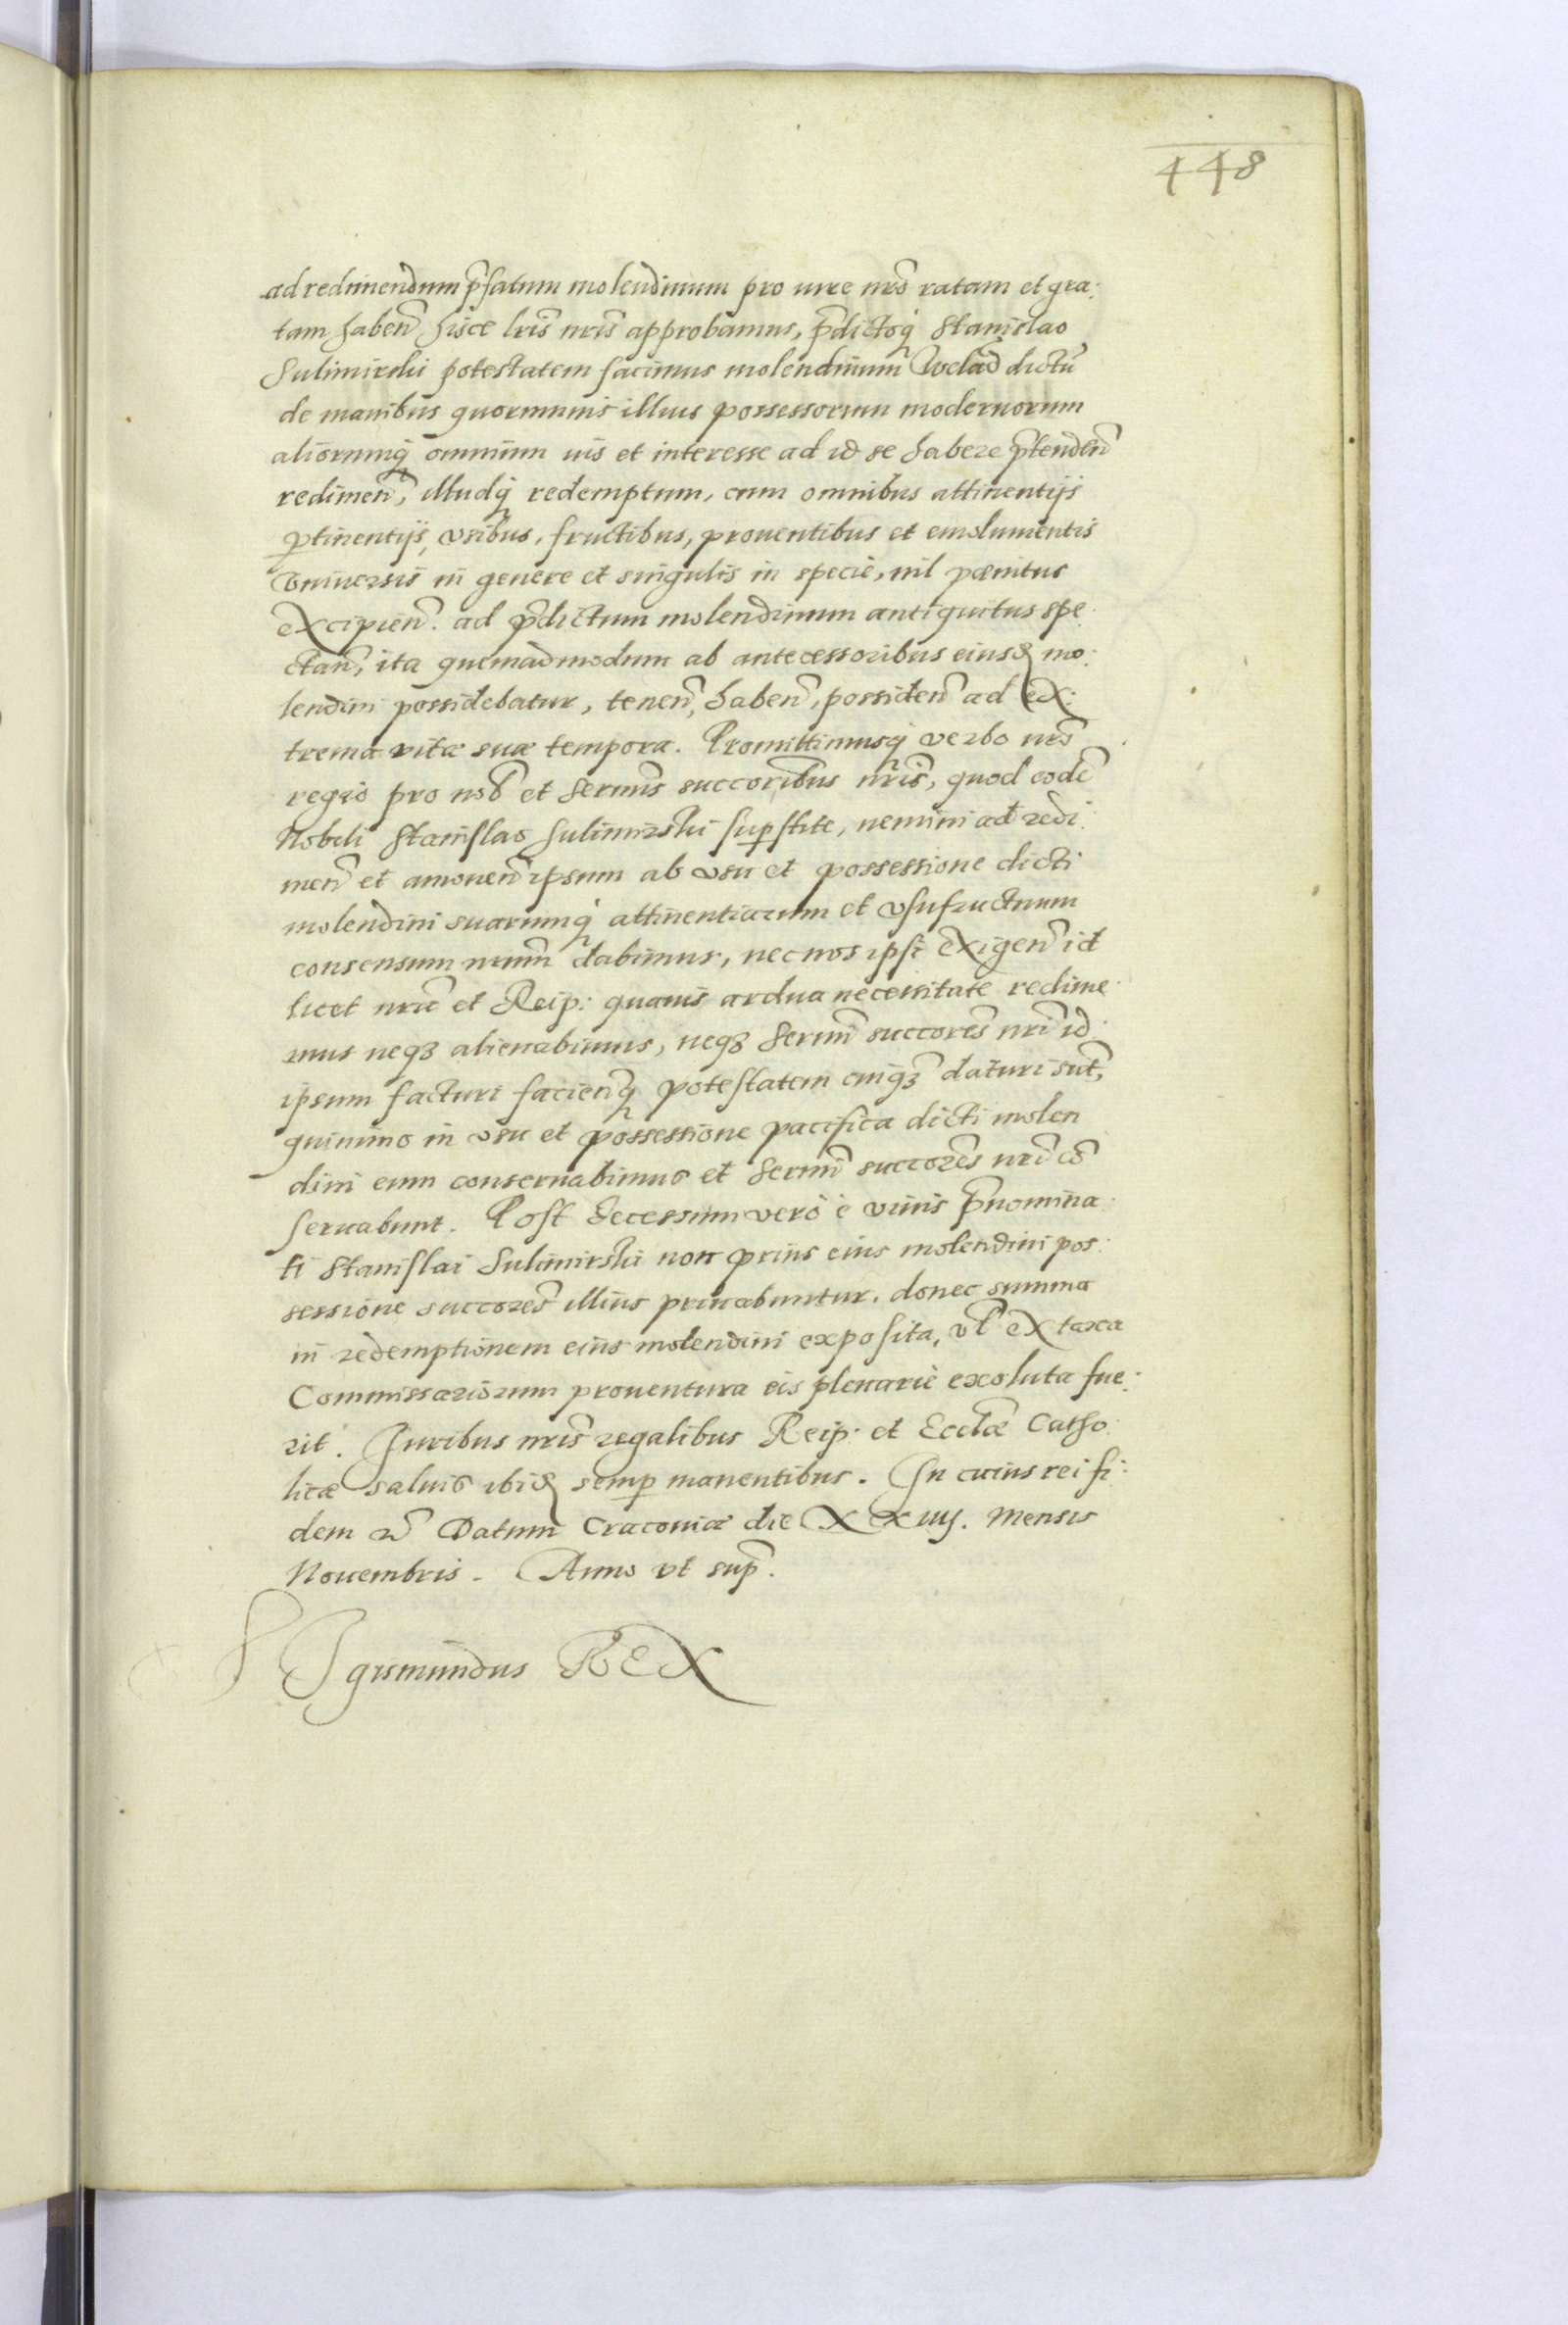 448
ad redimendum p̃fatum molendinum pro iure nrõ ratam et gra:
tam habeñ hisce lris̃ nris̃ approbamus, p̃dictoq̨ Stanislao
Sulimirski potestatem facimus molendinum Welãd dictũ
de manibus quorumuis illius possessorum modernorum
aliorumq̨ omnium ius et interesse ad id se habere p̃tendeñ
redimeñ, illudq̨ redemptum, cum omnibus attinentijs
ꝑtinentijs, vsibus, fructibus, prouentibus et emolumentis
Vniuersis in genere et singulis in specie, nil pœnitus
excipieñ. ad p̃dictum molendinum antiquitus spe:
ctañ, ita quemadmodum ab antecessoribus eiusꝺ mo:
lendini possidebatur, teneñ, habeñ, possideñ ad ex:
trema vitæ suæ tempora. Promittimusq̨ verbo nrõ
regio pro nob̃ et Sermis̃ succoribus̃ nris̃, quod eodẽ
Nobili Stanislao Sulimirski suꝑstite, nemini ad redi:
meñ et amoueñ ipsum ab vsu et possessione dicti
molendini suarumq̨ attinentiarum et vsufructuum
consensum nrum̃ dabimus, nec nos ipsi exigeñ id
licet nrã et Reip: quauis ardua necessitate redime:
mus neqȝ alienabimus, neqȝ Sermĩ succores̃ nrĩ id
ipsum facturi facienq̨̃ potestatem cuiqȝ̃ daturi sũt,
quinimo in vsu et possessione pacifica dicti molen
dini eum conseruabimus et Sermĩ succores̃ nrĩ cõ
seruabunt. Post decessum vero è viuis p̃nomina:
ti Stanislai Sulimirski non prius eius molendini pos:
sessione succores̃ illius priuabuntur, donec summa
in redemptionem eius molendini exposita, vl̃ ex taxa
Commissariorum prouentura eis plenarie exoluta fue:
rit. Juribus nris̃ regalibus Reip: et Ecclæ̃ Catho:
licæ saluis ibiꝺ semꝑ manentibus. In cuius rei fi:
dem &c̃ Datum Cracouiæ die XXiiij. Mensis
Nouembris. Anno vt sup̃.
Sigismundus REX